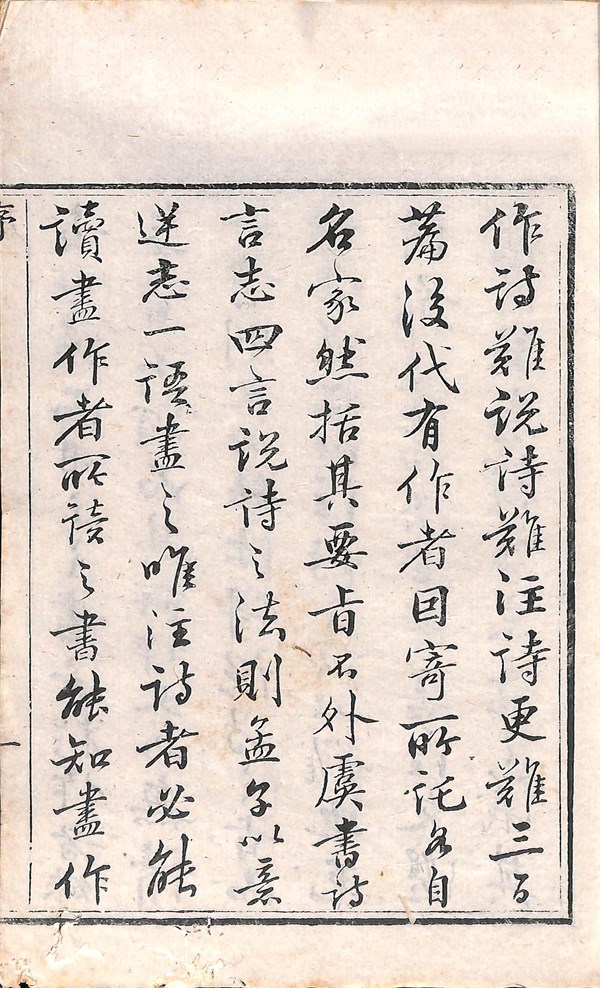 作詩難説詩難注詩更難三百
篇後代有作者因寄所託各自
名家然括其要旨不外虞書詩
言志四言説詩之法則孟子以意
逆志一語盡之唯注詩者必能
讀盡作者所讀之書能知盡作
序
一